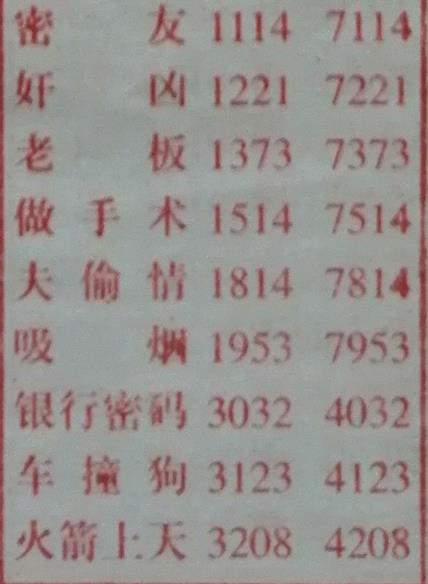 密友 1114 7114
奸凶 1221 7221
老板 1373 7373
做手术 1514 7514
夫偷情 1814 7814
吸烟 1953 7953
银行密码 3032 4032
车撞狗 3123 4123
火箭上天 3208 4208